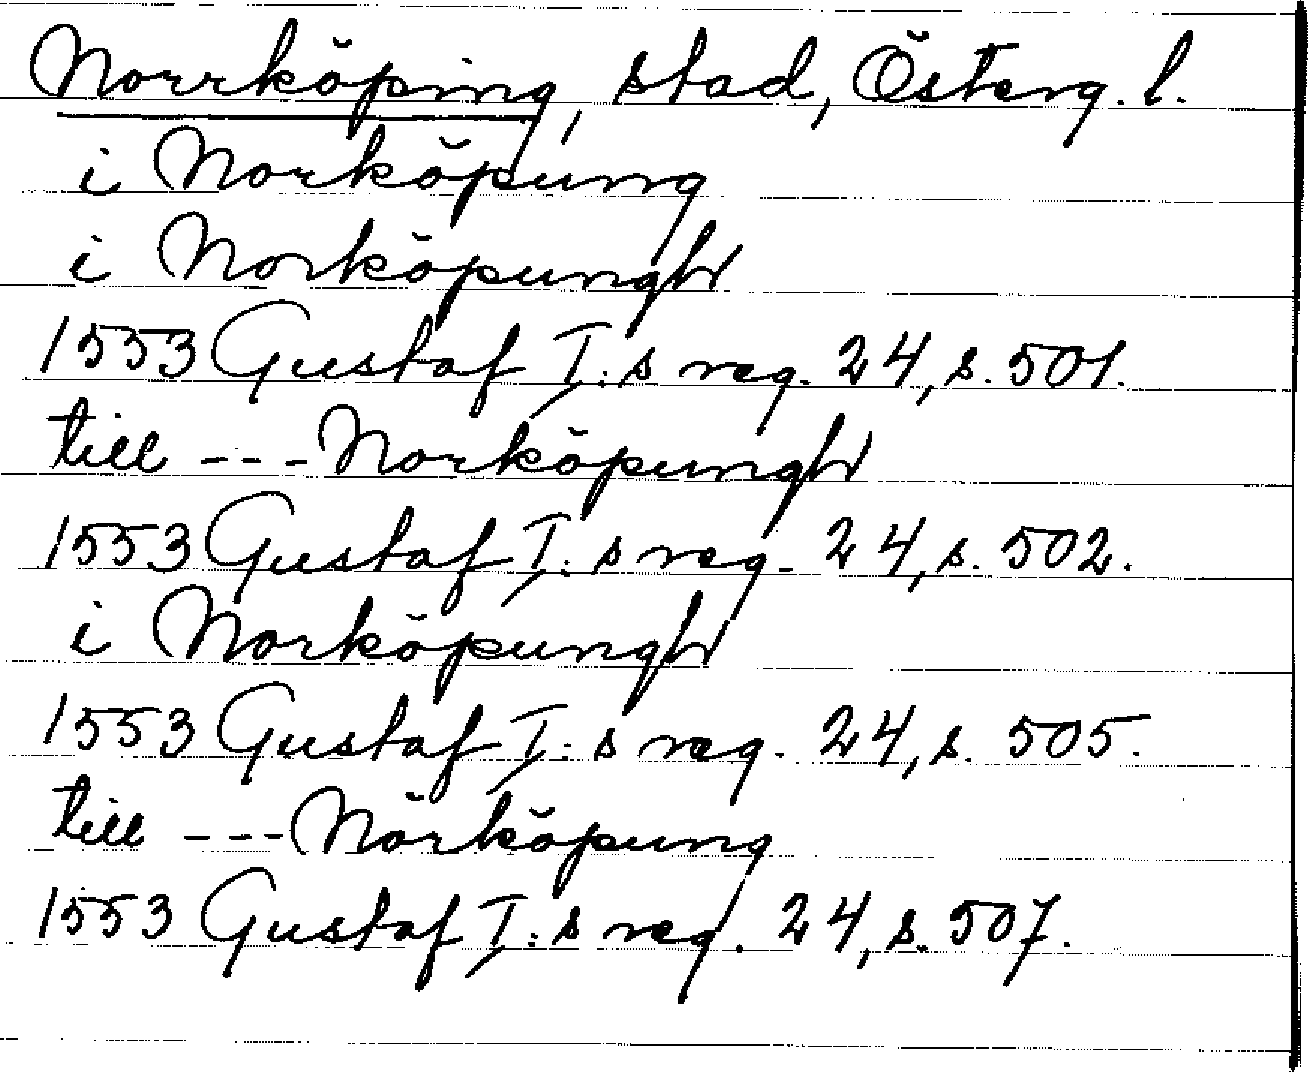 Norrköping, stad, Österg. l.
i Norköpung
i Norköpungh
1553 Gustaf I:s reg. 24, s. 501.
till --- Norköpungh
1553 Gustaf I:s reg. 24, s. 502.
i Norköpungh
1553 Gustaf I:s reg. 24, s. 505.
till --- Nörköpung
1553 Gustaf I:s reg. 24, s. 507.